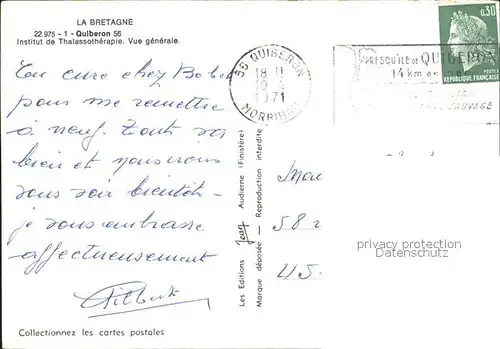 LA BRETAGNE
22.975 - 1 - Quiberon 56
Institut de Thalassothérapie. Vue générale.
En cure chez Bobet
pour me remettre
à neuf. Tout va
bien et nous irons
vous voir bientôt -
je vous embrasse
affectueusement
Collectionnez les cartes postales
Les Editions Jean Audierne (Finistère)
Marque déposée - Reproduction interdite
56 QUIBERON
18 H
1971
MORBIHAN
PRESQU'ILE de QUIBERON
14 km en
SAUVAGE
0,30
POSTES
REPUBLIQUE FRANÇAISE
58
45
privacy protection
Datenschutz